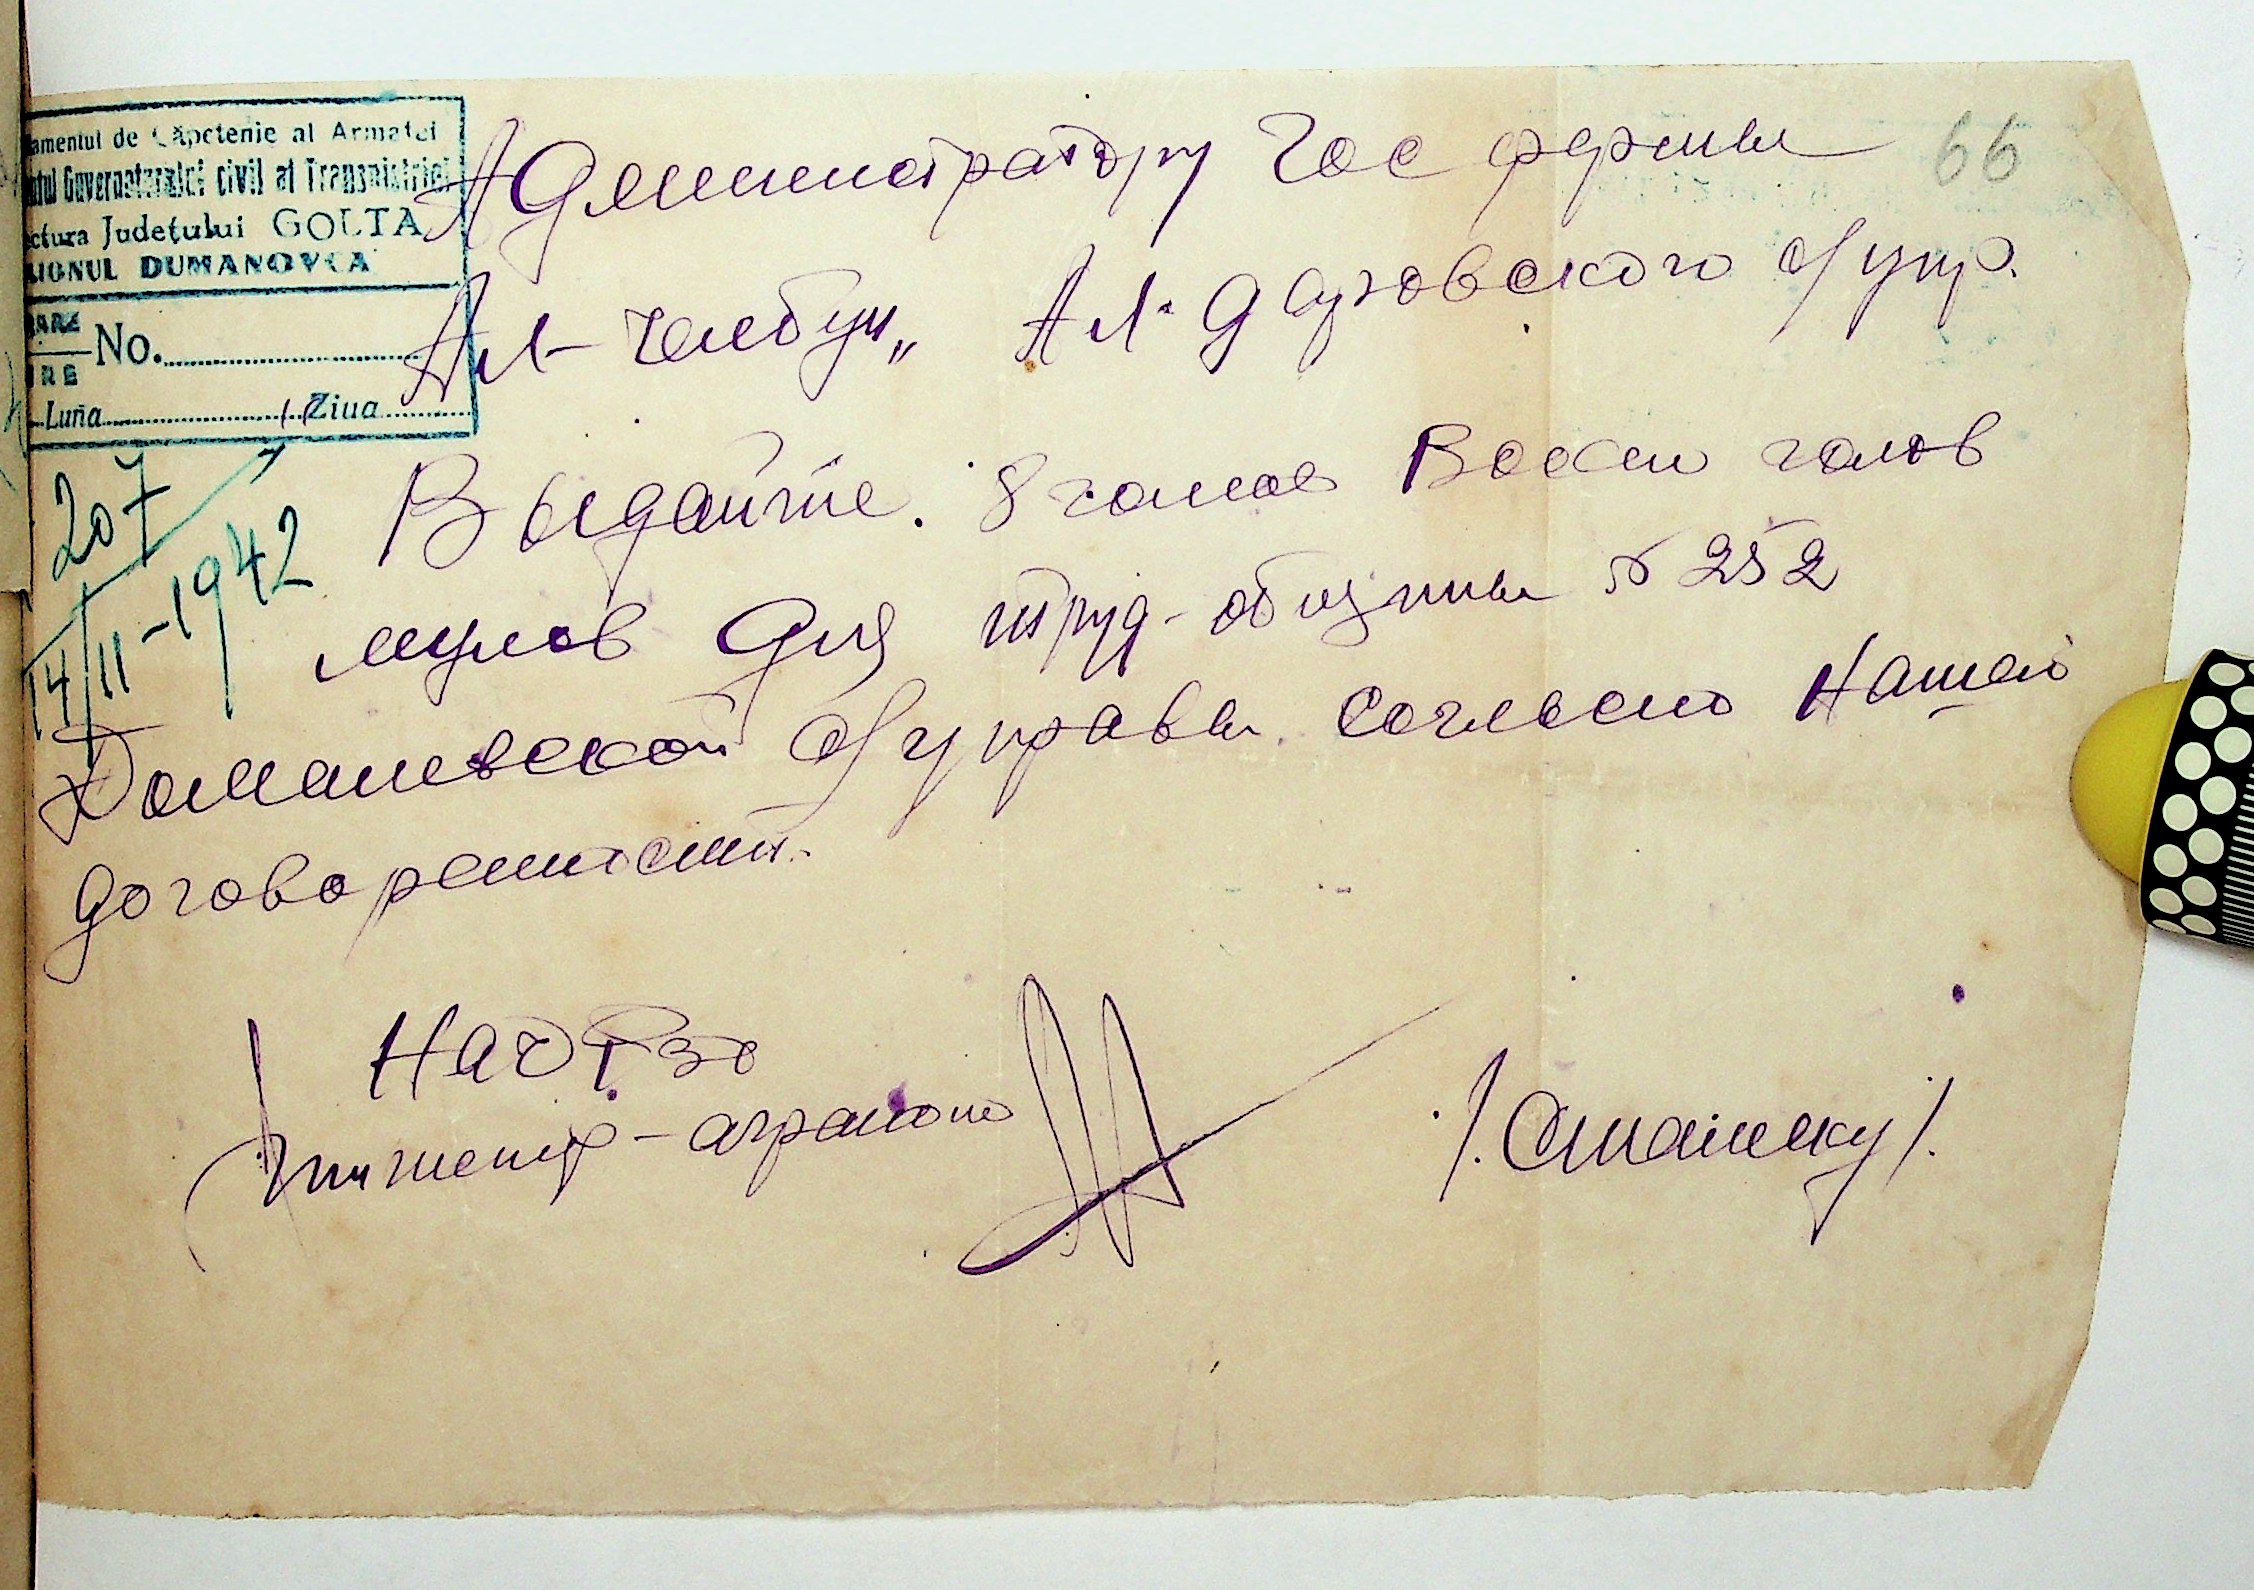 amentul de Căpetenie al Armatei
tul Guvernatorului civil al Transnistriei
ectura Județului GOLTA
AIONUL DUMANOVCA
No.
Luna Ziua
207
14/II-1942
66
Администратору Гос фермы
Ал- Ал. Даровского
Выдайте. 8 голов Восем голов
мулов для труд-общины № 252
Доманевской управы согласно нашей
договорености.
НАЧ РЗО
Инженер-агроном
/. Останеку /.